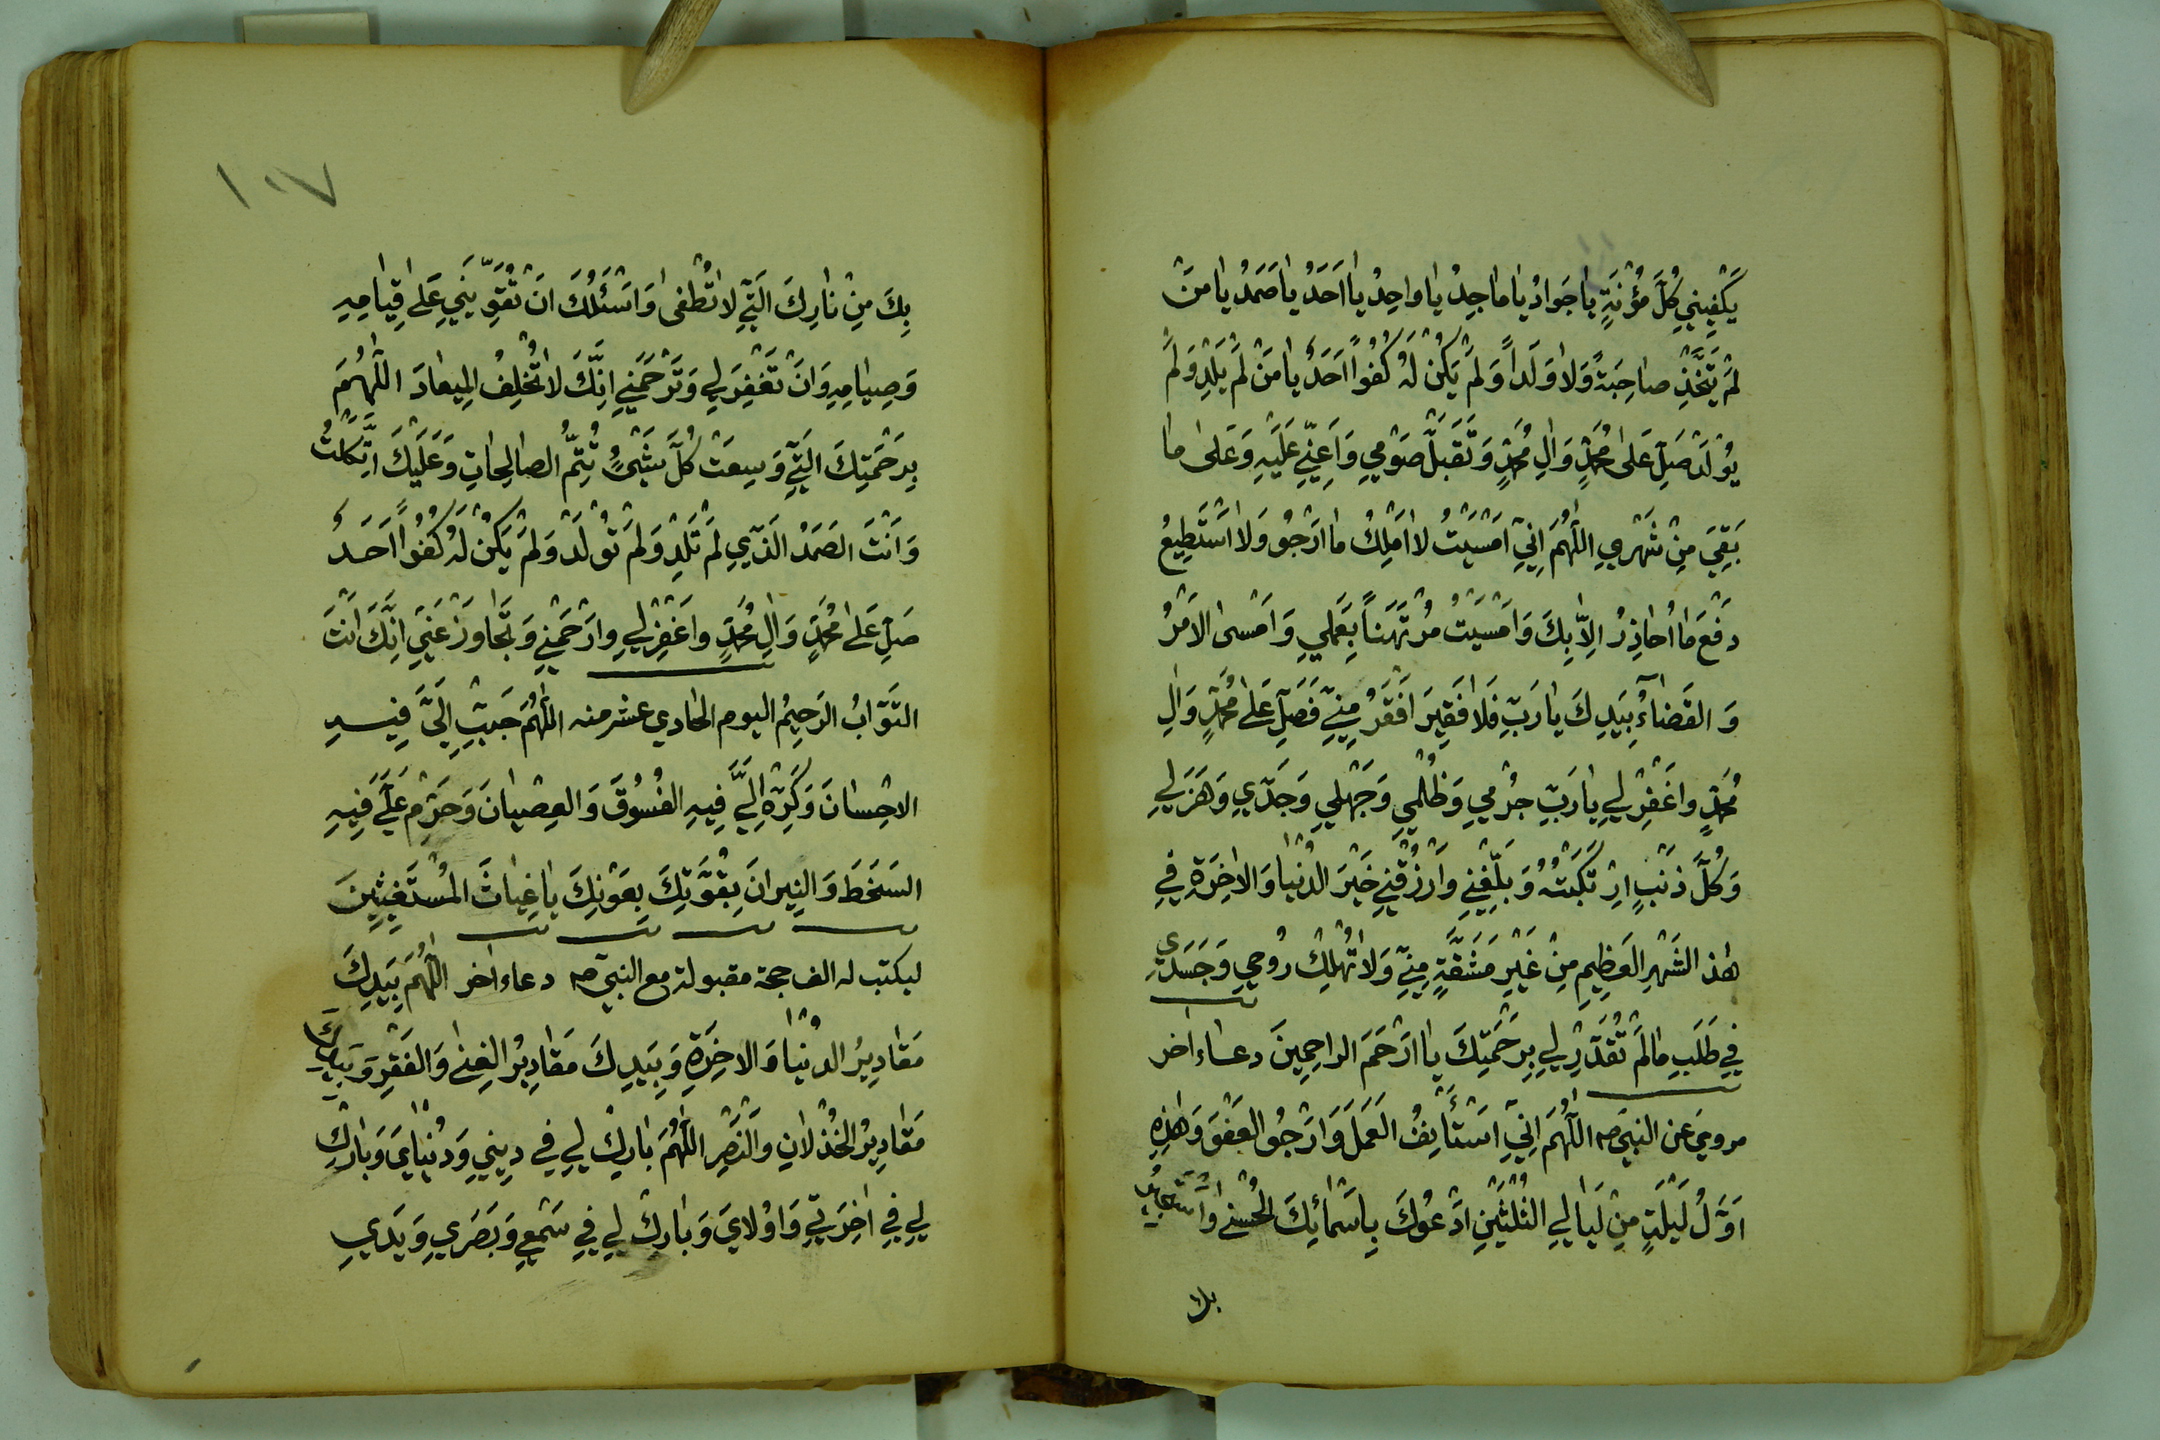 يَكْفِيني كُلَّ مَؤُنَةٍ يا جَوادُ يا ماجِدُ يا واحِدُ يا اَحَدُ يا صَمَدُ يا مَنْ
لَمْ يَتَّخِذْ صاحِبَةً وَلا وَلَداً وَلَمْ يَكُنْ لَهُ كُفُواً اَحَدٌ يا مَنْ لَمْ يَلِدْ وَلَمْ
يُولَدْ صَلِّ عَلى مُحَمَّدٍ وَالِ مُحَمَّدٍ وَتَقَبَّلْ صَوْمي وَاَعِنّي عَلَيْهِ وَعَلى ما
بَقِيَ مِنْ شَهْري اللّهُمَّ اِنّي اَمْسَيْتُ لا اَمْلِكُ ما اَرْجُو وَلا اَسْتَطيعُ
دَفْعَ ما اُحاذِرُ اِلاّ بِكَ وَاَمْسَيْتُ مُرْتَهَناً بِعَمَلي وَاَمْسى الاَمْرُ
وَ القَضاءُ بِيَدِكَ يا رَبِّ فَلا فَقيرَ اَفْقَرُ مِنّي فَصَلِّ عَلى مُحَمَّدٍ وَالِ
مُحَمَّدٍ واغْفِرْ لي يا رَبِّ جُرْمي وَظُلْمي وَجَهْلي وَجَدّي وَهَزَلي
وَكُلَّ ذَنْبٍ ارْتَكَبْتُهُ وَبَلِّغْني وَارْزُقْني خَيْرَ الدُنْيا وَالاخِرَةِ في
هذا الشَهْرِ العَظيمِ مِنْ غَيْرِ مَشَقَّةٍ مِنّي وَلا تُهْلِكْ رُوحي وَجَسَدي
في طَلَبِ مالَمْ تُقَدِّرْ لي بِرَحْمَتِكَ يا اَرْحَمَ الراحِمينَ دعاء اخر
مروي عن النبي ص اللّهُمَّ اِنّي اَسْتَأنِفُ العَمَلَ وَارْجُو العَفْوَ وَهذِهِ
اَوَّلُ لَيْلَةٍ مِنْ لَيالي الثُلُثَيْنِ اَدْعُوكَ بِاَسْمائِكَ الحُسْنى وَاَسْتَجيرُ
بك
١٠٧
بِكَ مِنْ نارِكَ الَّتي لا تُطْفى وَاَسْئَلُكَ اَنْ تُقَوِّيَني عَلى قِيامِهِ
وَصِيامِهِ وَاَنْ تَغْفِرَ لي وَتَرْحَمَني اِنَّكَ لا تُخْلِفُ الميعادَ اللّهُمَّ
بِرَحْمَتِكَ الَّتي وَسِعَتْ كُلَّ شَيْءٍ تُتِمُّ الصالِحاتِ وَعَلَيْكَ اتَّكَلْتُ
وَاَنْتَ الصَمَدُ الَّذي لَمْ تَلِدْ وَلَمْ تُولَدْ وَلَمْ يَكُنْ لَهُ كُفُواً اَحَدٌ
صَلِّ عَلى مُحَمَّدٍ وَالِ مُحَمَّدٍ واغْفِرْ لي وارْحَمْني وَتَجاوَزْ عَنّي اِنَّكَ اَنْتَ
التَوّابُ الرَحيمُ اليوم الحادي عشر منه اللّهُمَّ حَبِّبْ اِلَيَّ فيهِ
الاحْسانَ وَكَرِّهْ اِلَيَّ فيهِ الفُسُوقَ وَالعِصْيانَ وَحَرِّمْ عَلَيَّ فيهِ
السَخَطَ وَالنيرانَ بِقُوَّتِكَ بِعَوْنِكَ يا غِياثَ المُسْتَغيثينَ
ليكتب له الف حجة مقبولة مع النبي ص دعاء اخر اللّهُمَّ بِيَدِكَ
مَقاديرُ الدُنْيا وَالاخِرَةِ وَبِيَدِكَ مَقاديرُ الغِنى وَالفَقْرِ وَبِيَدِكَ
مَقاديرُ الخُذْلانِ والنَصْرِ اللّهُمَّ بارِكْ لي في ديني وَدُنْيايَ وَبارِكْ
لي في اخِرَتي وَاُوْلايَ وَبارِكْ لي في سَمْعي وَبَصَري وَيَدي